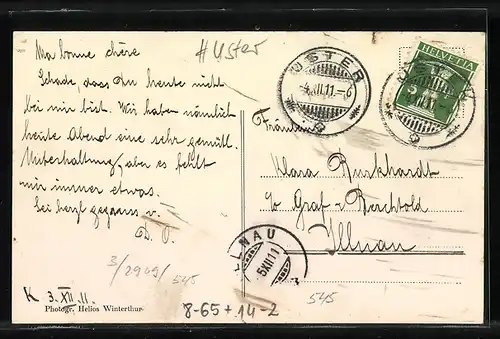 Ma bonne chère
Schade, dass Du heute nicht
bei mir bist. Wir haben nämlich
heute Abend eine sehr gemütl.
Unterhaltung, aber es fehlt
mir immer etwas.
Sei herzl gegrüsst v.
D. O.
3/2909/545
K 3. XII. 11.
Photogr. Helios Winterthur
# Uster
USTER
-4.XII.11.-6
HELVETIA
5
Fräulein
Klara Burkhardt
Graf - Berchtold
Illnau
ILLNAU
5XII11
8-65 + 14-2
545